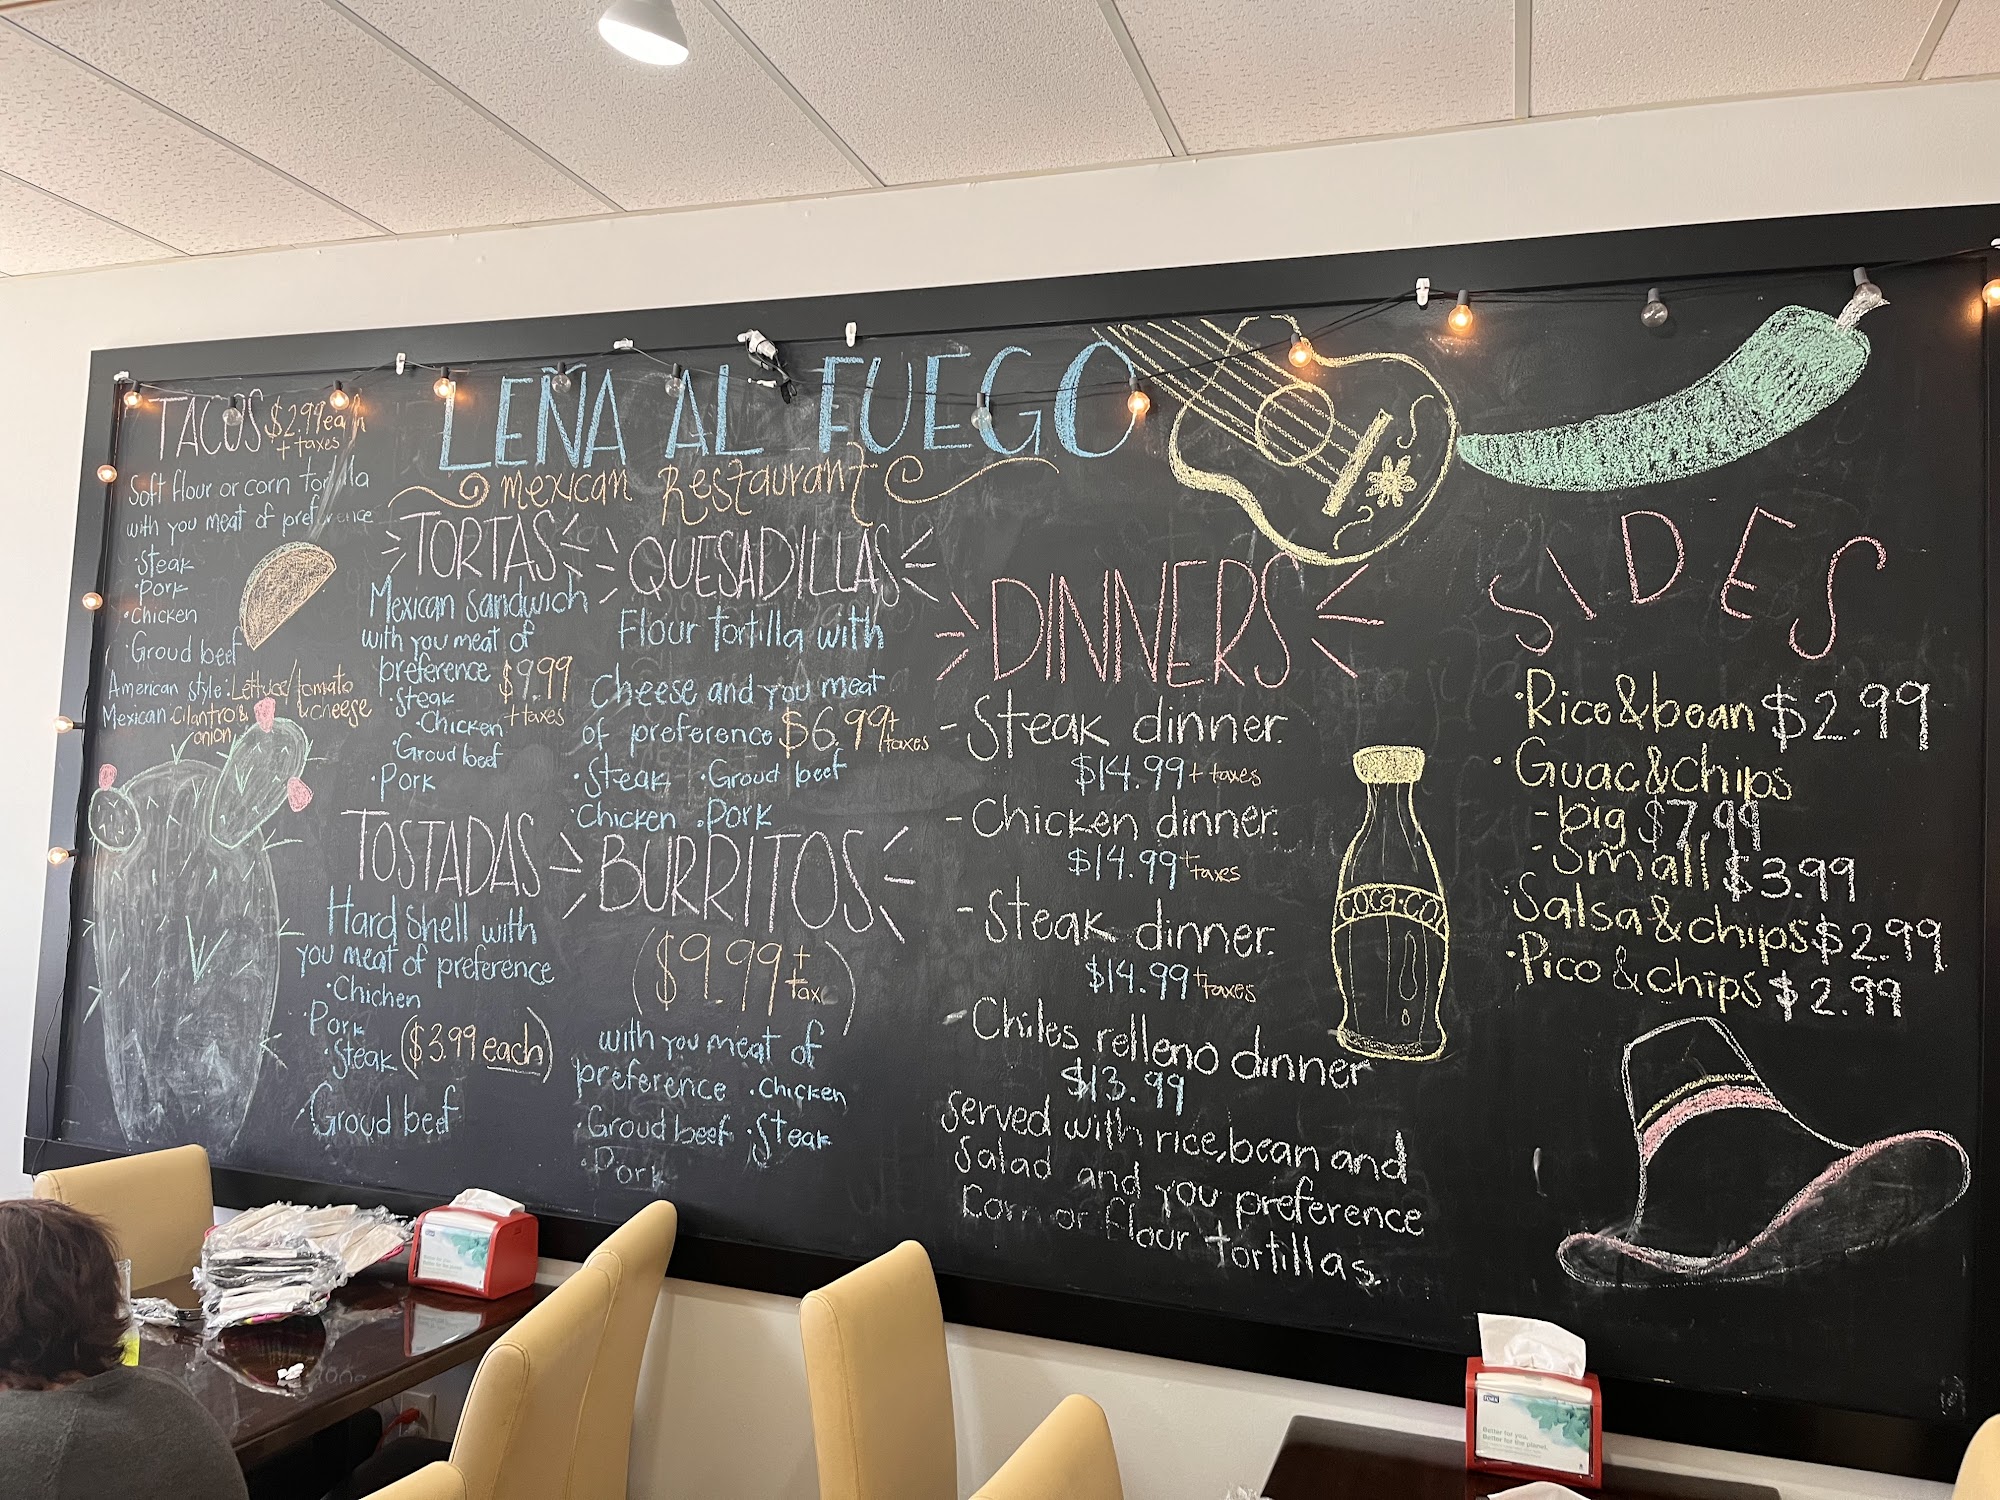 LEÑA AL FUEGO
mexican Restaurant
TACOS $2.99 each
+ taxes
Soft flour or corn tortilla
with you meat of preference
·Steak
·Pork
·Chicken
·Groud beef
American style: Lettuce/tomato
& cheese
Mexican: cilantro &
onion
TORTAS
Mexican Sandwich
with you meat of
preference $9.99
+ taxes
·Steak
·Chicken
·Groud beef
·Pork
QUESADILLAS
Flour tortilla with
Cheese and you meat
of preference $6.99 + taxes
·Steak ·Groud beef
·Chicken ·Pork
TOSTADAS
Hard Shell with
you meat of preference
·Chichen
·Pork
·Steak ($3.99 each)
·Groud beef
BURRITOS
($9.99 + tax)
with you meat of
preference ·Chicken
·Groud beef ·Steak
·Pork
DINNERS
-Steak dinner.
$14.99 + taxes
-Chicken dinner.
$14.99 + taxes
-Steak dinner.
$14.99 + taxes
-Chiles relleno dinner
$13.99
served with rice, bean and
Salad and you preference
Corn or flour tortillas.
COCA-COL
SIDES
·Rice & bean $2.99
·Guac & chips
-big $7,99
-Small $3.99
·Salsa & chips $2.99
·Pico & chips $2.99
TORK
Better for you.
Better for the planet.